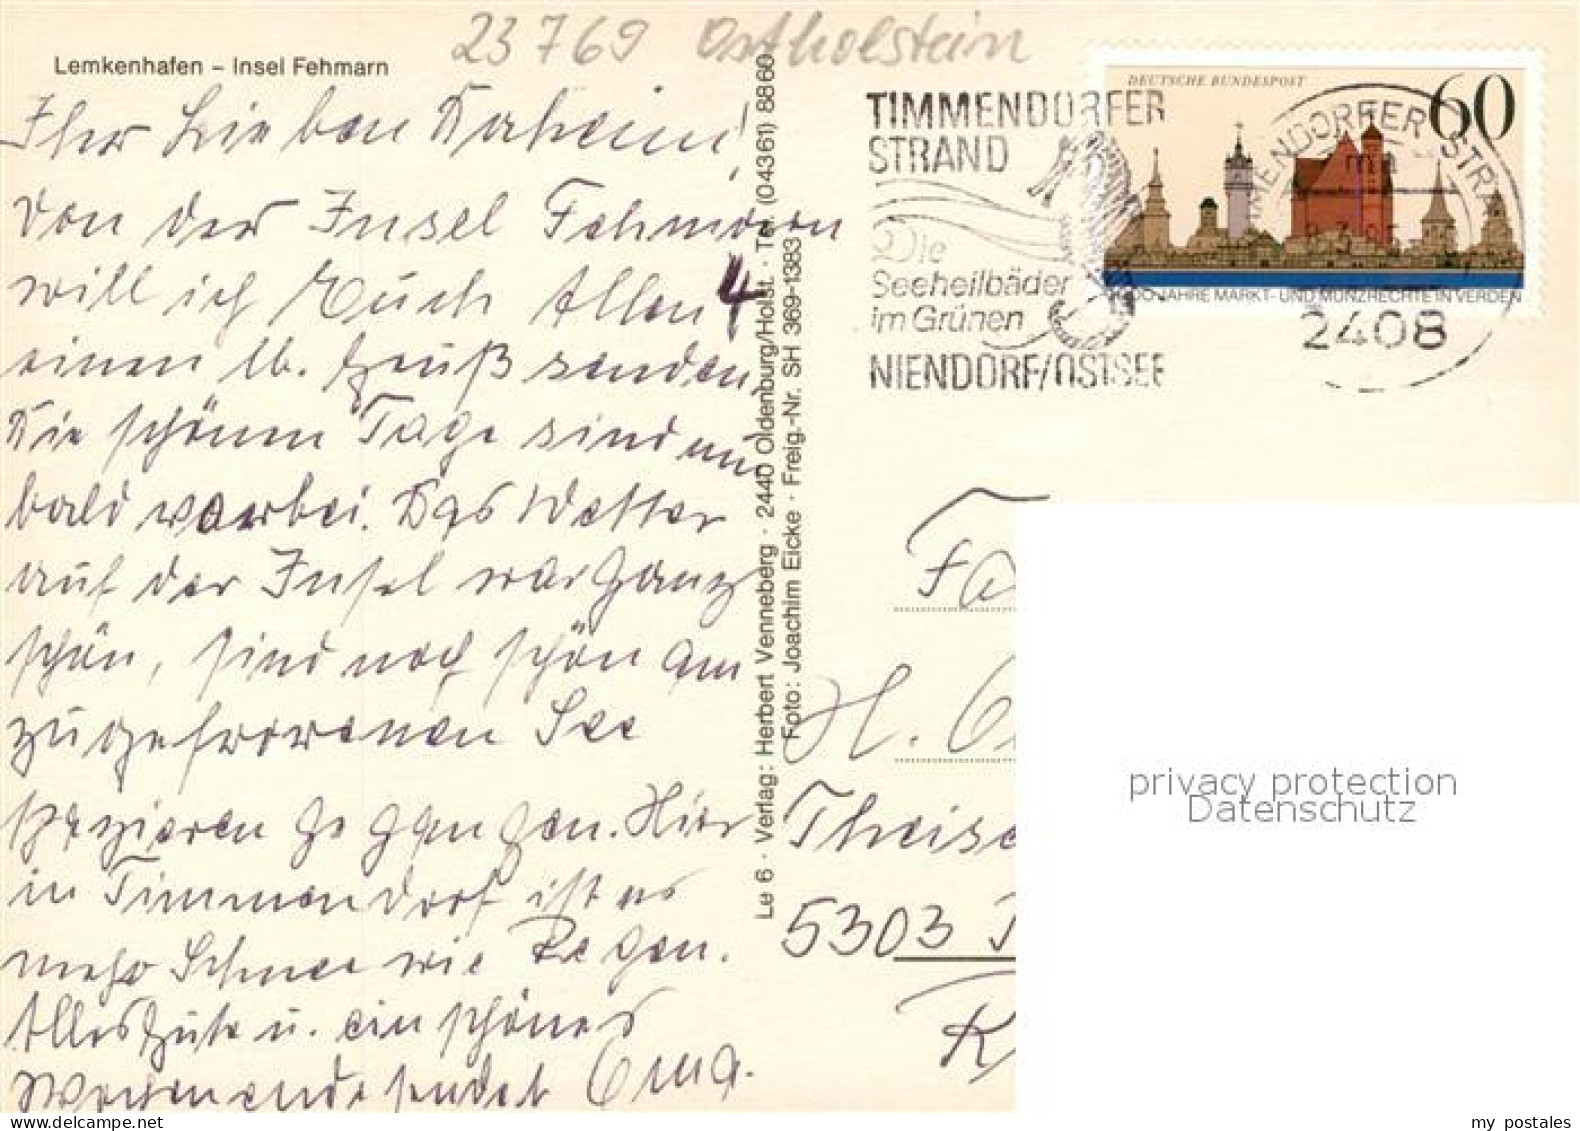 23769 Ostholstein
Lemkenhafen – Insel Fehmarn
Ihr Lieben Daheim!
Von der Insel Fehmarn
will ich Euch Allen 4
einen lb. Gruß senden.
Die schönen Tage sind nun
bald vorbei. Das Wetter
auf der Insel war ganz
schön, sind noch schön am
zugefrorenen See
spazieren gegangen. Hier
in Timmendorf ist es
mehr Schnee wie Regen.
Alles Gute u. ein schönes
Wochenende sendet Oma.
Le 6 · Verlag: Herbert Venneberg · 2440 Oldenburg/Holst. · Tel. (04361) 8860
Foto: Joachim Eicke · Freig.-Nr. SH 369-1383
TIMMENDORFER
STRAND
Die
Seeheilbäder
im Grünen
NIENDORF/OSTSEE
DEUTSCHE BUNDESPOST
60
1000 JAHRE MARKT- UND MÜNZRECHTE IN VERDEN
TIMMENDORFER STRAND
2408
Fa
H.
Theise
5303
privacy protection
Datenschutz
my postales